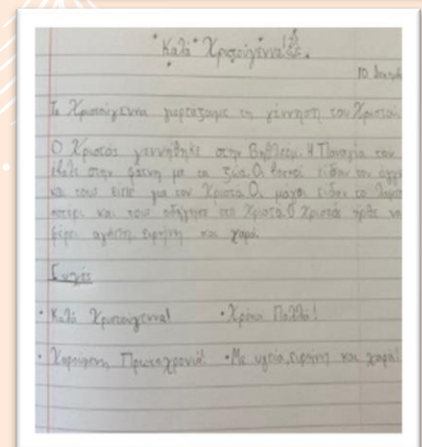 "Καλά Χριστούγεννα!"
10 Δεκεμβ
Τα Χριστούγεννα γιορτάζουμε τη γέννηση του Χριστού.
Ο Χριστός γεννήθηκε στην Βηθλεέμ. Η Παναγία τον
έβαλε στην φάτνη με τα ζώα. Οι βοσκοί είδαν τον άγγε
και τους είπε για τον Χριστό. Οι μάγοι είδαν το λαμπ
αστέρι και τους οδήγησε στο Χριστό. Ο Χριστός ήρθε να
φέρει αγάπη, ειρήνη και χαρά.
Ευχές
• Καλά Χριστούγεννα! • Χρόνια Πολλά!
• Χαρούμενη Πρωτοχρονιά! • Με υγεία, ειρήνη και χαρά!